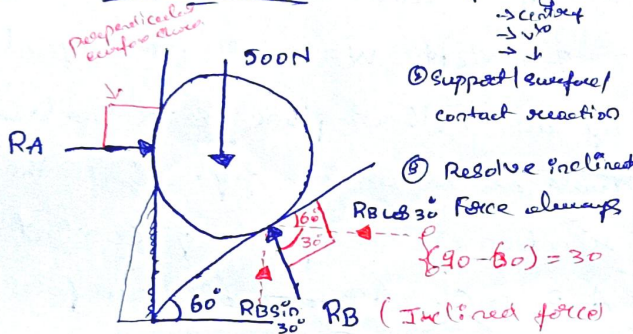 perpendicular
surface
500N
→ centre
→ ↓
⑤ Support / surface /
contact reaction
RA
⑥ Resolve inclined
Force always
RB cos 30°
60°
30°
(90-60) = 30
60°
RB sin
30°
RB (Inclined force)